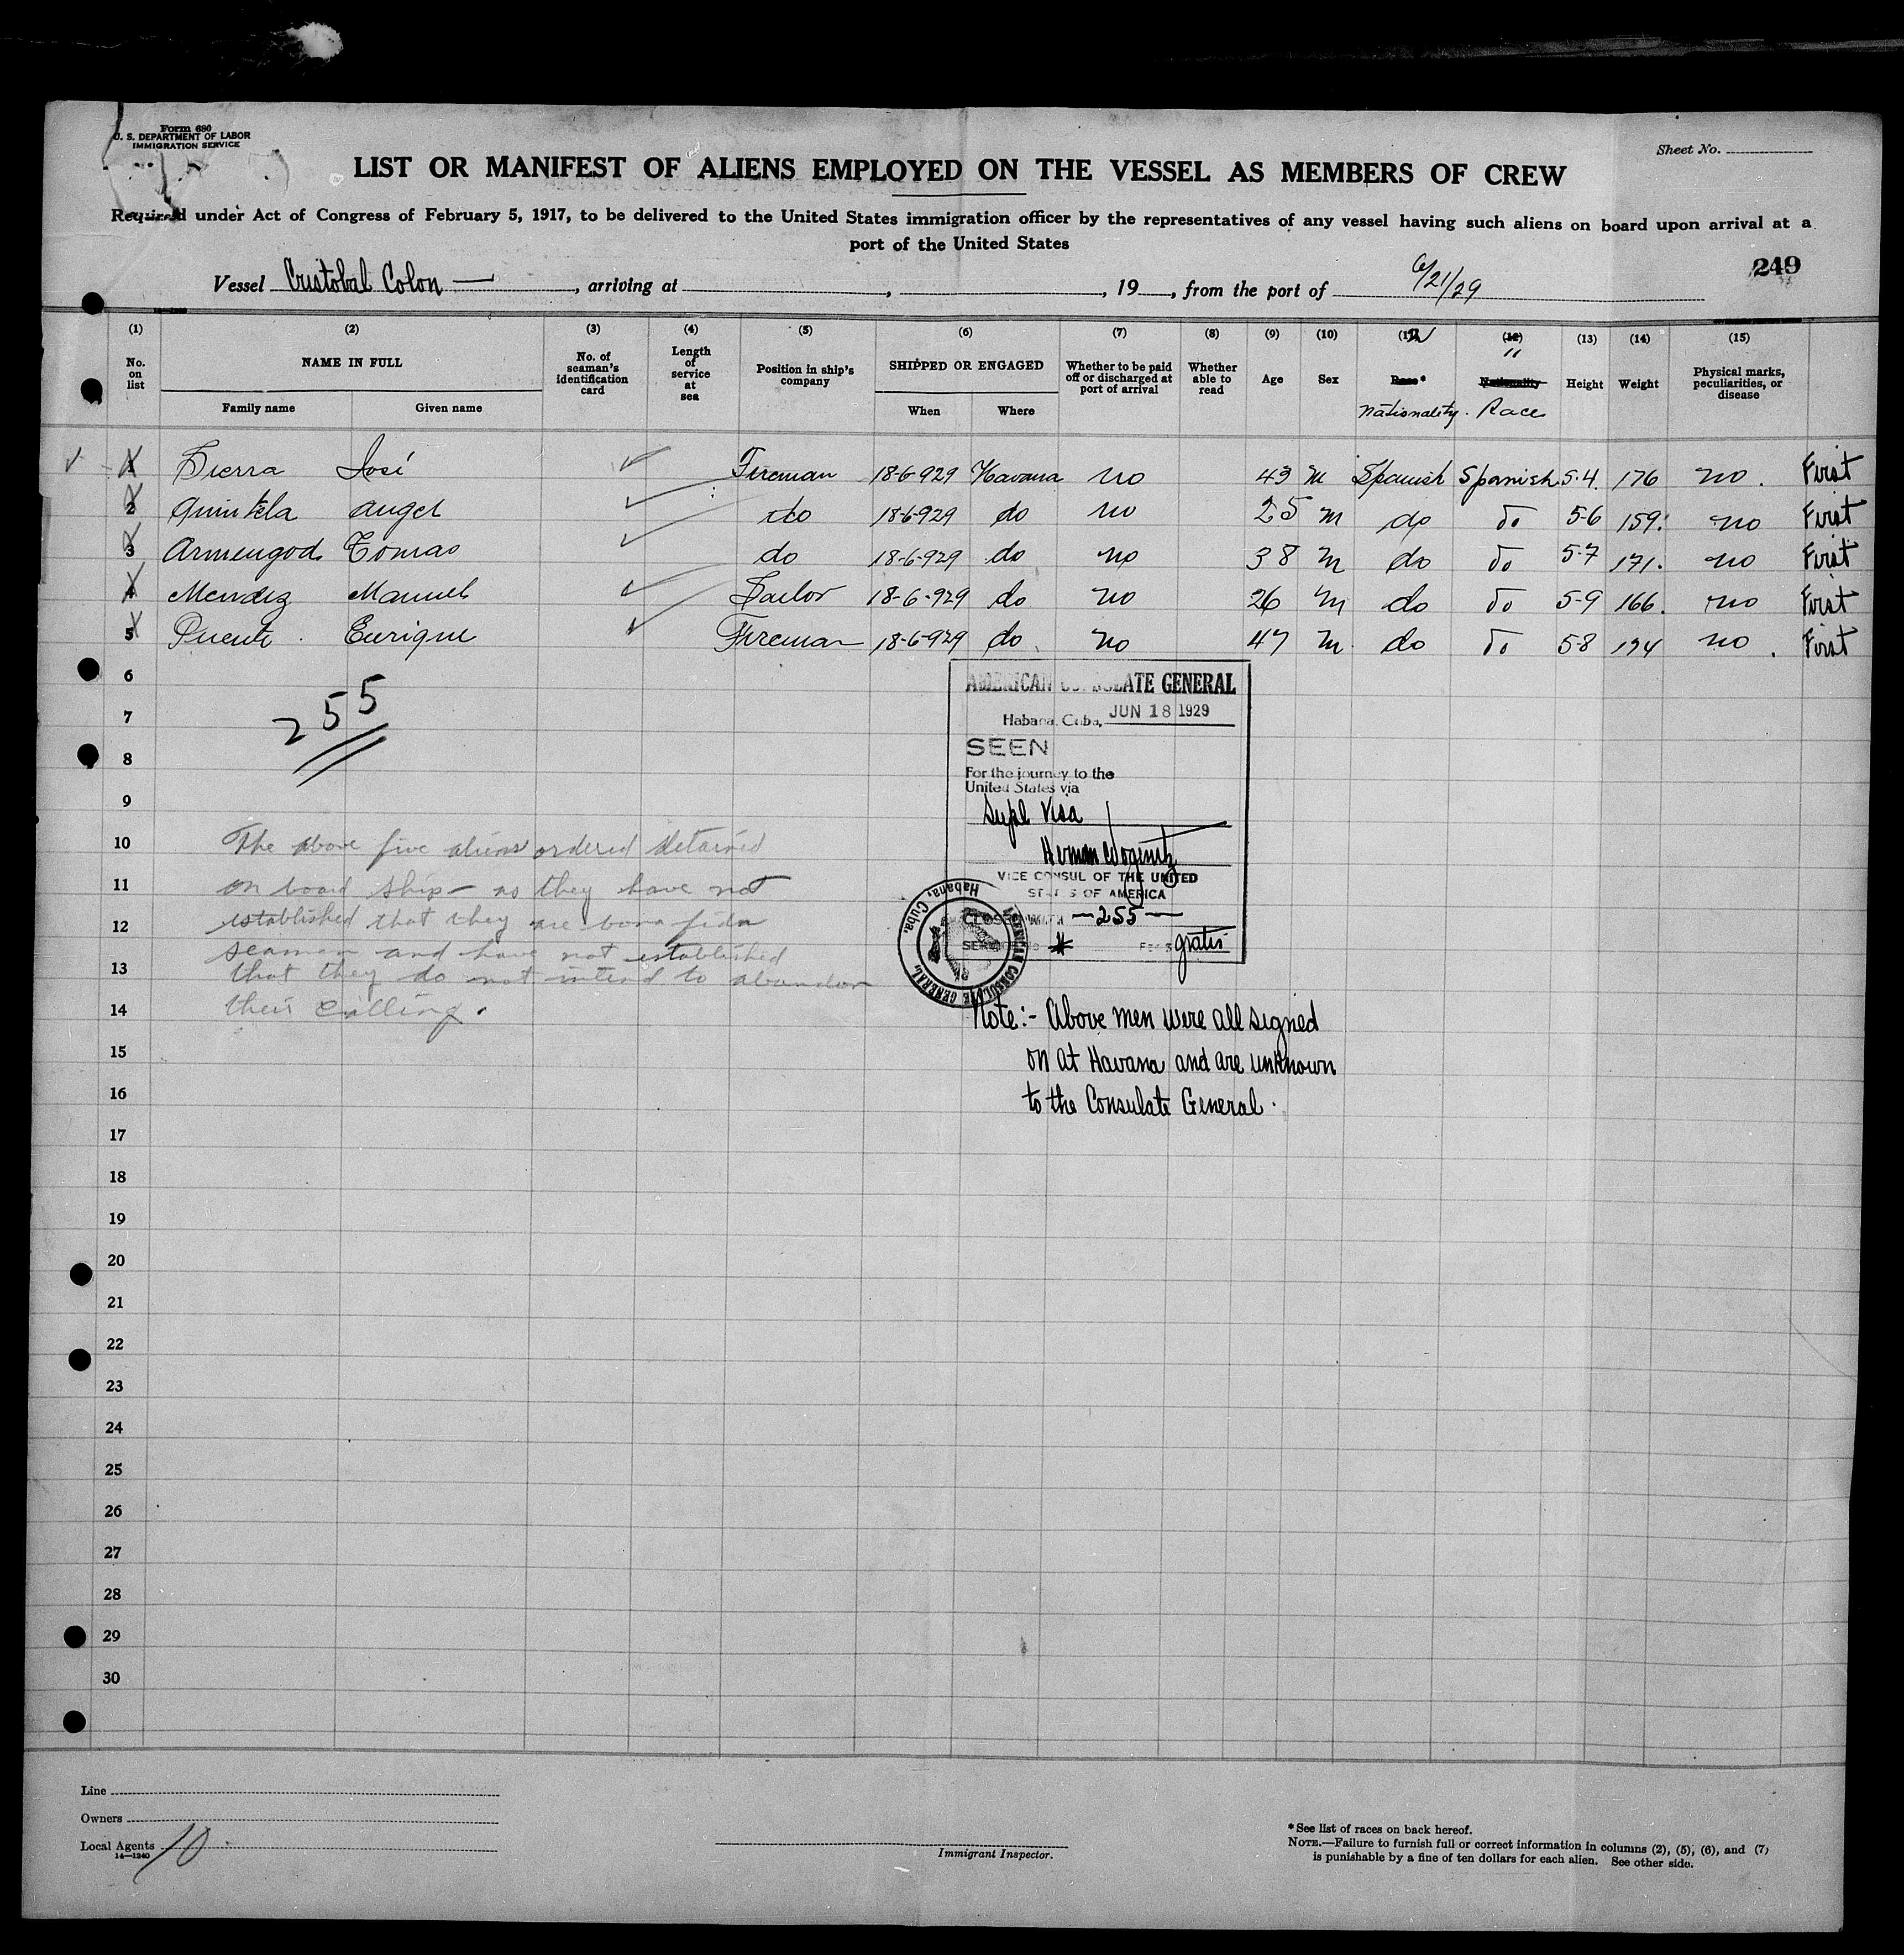 Form 680
U. S. DEPARTMENT OF LABOR
IMMIGRATION SERVICE
Sheet No.
LIST OR MANIFEST OF ALIENS EMPLOYED ON THE VESSEL AS MEMBERS OF CREW
Required under Act of Congress of February 5, 1917, to be delivered to the United States immigration officer by the representatives of any vessel having such aliens on board upon arrival at a
port of the United States
249
Vessel Cristobal Colon — , arriving at , , 19 , from the port of 6/21/29
(1) (2) (3) (4) (5) (6) (7) (8) (9) (10) (11) (12) (13) (14) (15)
No. on list NAME IN FULL Family name Given name No. of seaman's identification card Length of service at sea Position in ship's company SHIPPED OR ENGAGED When Where Whether to be paid off or discharged at port of arrival Whether able to read Age Sex Race* Nationality Height Weight Physical marks, peculiarities, or disease
Nationality. Race
1 Sierra José Fireman 18-6-929 Havana no 43 m Spanish Spanish 5-4. 176 no. First
2 Quintela Angel do 18-6-929 do no 25 m do do 5-6 159. no First
3 Armengod Tomas do 18-6-929 do no 38 m do do 5-7 171. no First
4 Mendez Manuel Sailor 18-6-929 do no 26 m do do 5-9 166. no First
5 Puente Enrique Fireman 18-6-929 do no 47 m do do 5-8 174 no. First
6
7
8
9
10
11
12
13
14
15
16
17
18
19
20
21
22
23
24
25
26
27
28
29
30
255
AMERICAN CONSULATE GENERAL
Habana, Cuba, JUN 18 1929
SEEN
For the journey to the
United States via
Supl Visa
VICE CONSUL OF THE UNITED
STATES OF AMERICA
— 255 —
gratis
AMERICAN CONSULATE GENERAL, Habana, Cuba.
The above five aliens ordered detained
on board ship — as they have not
established that they are bona fide
seaman and have not established
that they do not intend to abandon
their calling.
Note:- Above men were all signed
on at Havana and are unknown
to the Consulate General.
Line
Owners
Local Agents 10
14—1240
Immigrant Inspector.
*See list of races on back hereof.
NOTE.—Failure to furnish full or correct information in columns (2), (5), (6), and (7)
is punishable by a fine of ten dollars for each alien. See other side.